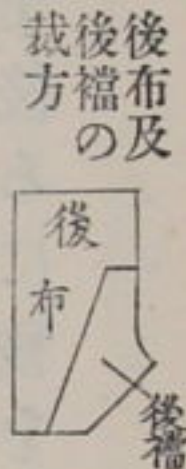 後布及
後襠の
裁方
後布
後襠